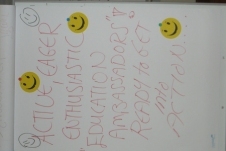 ACTIVE, EAGER
ENTHUSIASTIC
"EDUCATION
AMBASSADORS"
READY TO GET
INTO
ACTION...